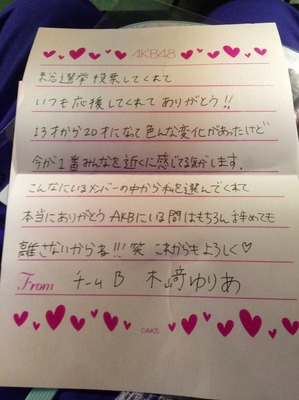 AKB48
総選挙投票してくれて
いつも応援してくれてありがとう!!
13才から20才になって色んな変化があったけど
今が1番みんなを近くに感じてる気がします。
こんなにいるメンバーの中から私を選んでくれて
本当にありがとう AKBにいる間はもちろん辞めても
離さないからね!!! 笑 これからもよろしく♡
From チームB 木﨑ゆりあ
©AKS